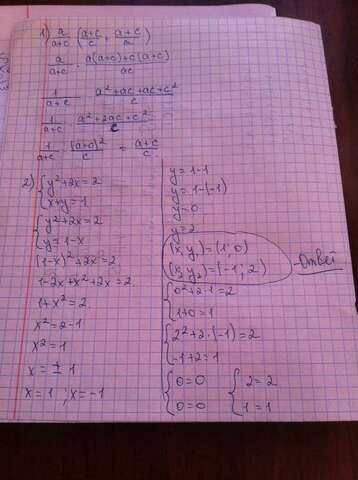 1) a/(a+c) · ((a+c)/c + (a+c)/a)
a/(a+c) · (a(a+c)+c(a+c))/ac
1/(a+c) · (a²+ac+ac+c²)/c
1/(a+c) · (a²+2ac+c²)/c
1/(a+c) · (a+c)²/c = (a+c)/c
2) { y²+2x=2
x+y=1
{ y²+2x=2
y=1-x
(1-x)²+2x=2
1-2x+x²+2x=2
1+x²=2
x²=2-1
x²=1
x=±1
x=1 ; x=-1
y=1-1
y=1-(-1)
y=0
y=2
(x, y,)=(1; 0)
(x₂ y₂)=(-1; 2) - Ответ
{ 0²+2·1=2
1+0=1
{ 2²+2·(-1)=2
-1+2=1
{ 0=0 { 2=2
0=0 1=1